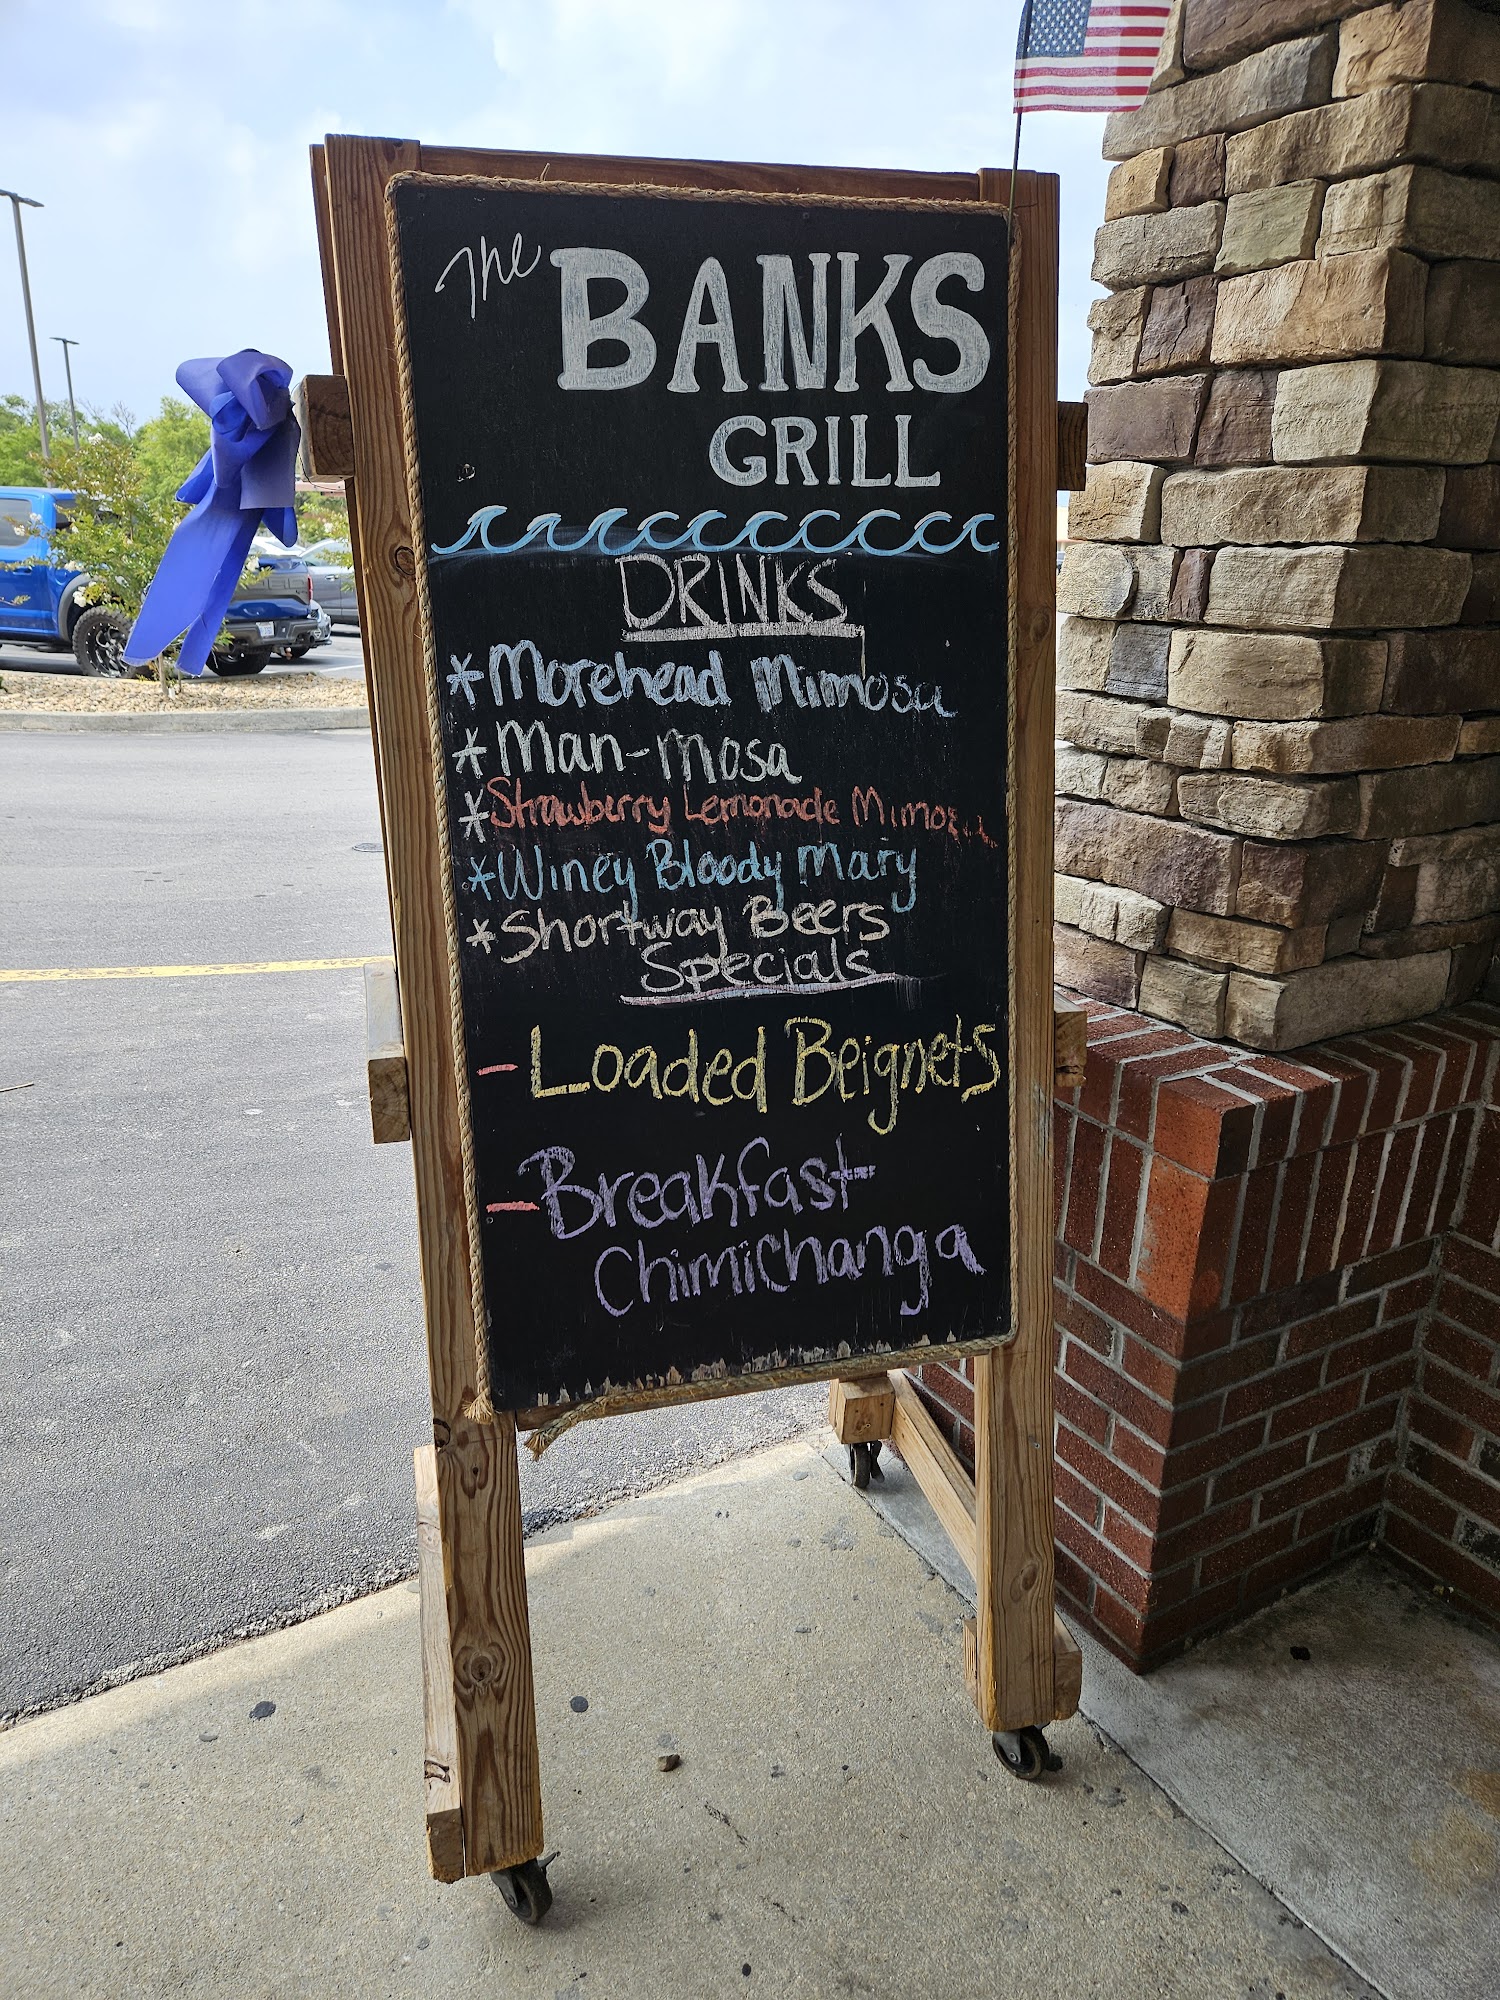 The BANKS
GRILL
DRINKS
*Morehead Mimosa
*Man-Mosa
*Strawberry Lemonade Mimosa
*Winey Bloody Mary
*Shortway Beers
Specials
-Loaded Beignets
-Breakfast
Chimichanga